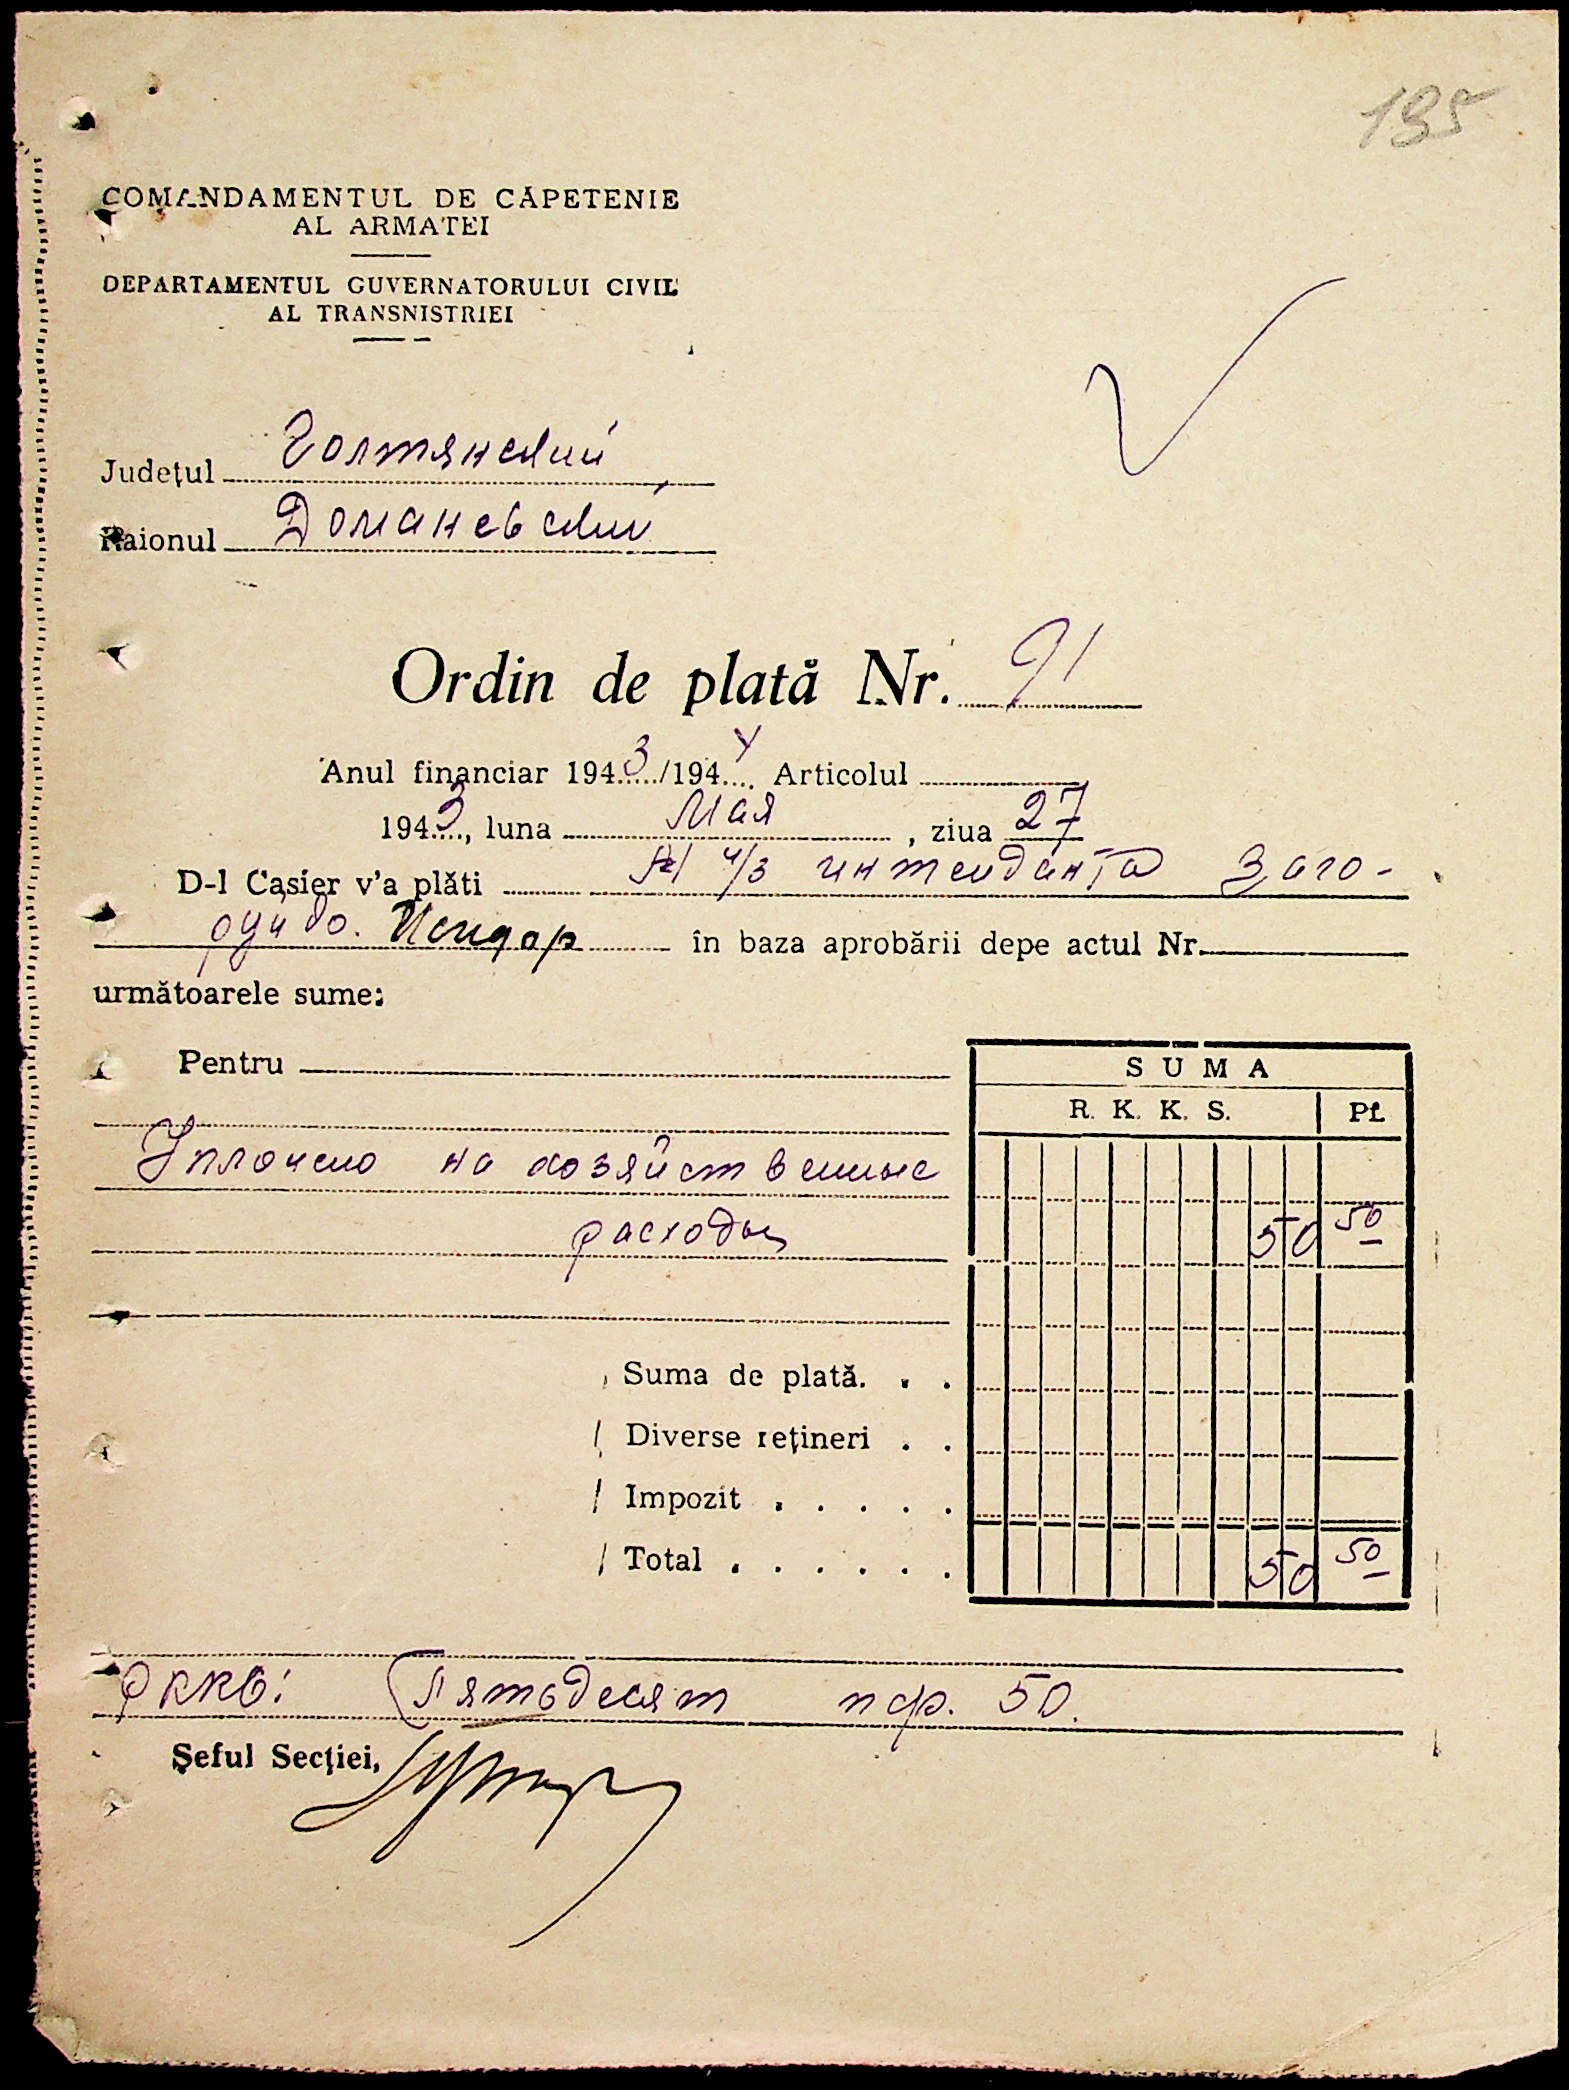 195
COMANDAMENTUL DE CĂPETENIE
AL ARMATEI
DEPARTAMENTUL GUVERNATORULUI CIVIL
AL TRANSNISTRIEI
Județul Голтянский
Raionul Доманевский
Ordin de plată Nr. 91
Anul financiar 1943/1944 Articolul
1943, luna Мая, ziua 27
D-l Casier v'a plăti ч/з интенданта Заго-
руйко. Исидор în baza aprobării depe actul Nr.
următoarele sume:
Pentru
SUMA
R. K. K. S. Pf.
Уплочено на хозяйственные
расходы 50 50
Suma de plată. . .
Diverse rețineri . .
Impozit . . . . .
Total . . . . . . 50 50
РККВ: Пятьдесят пф. 50.
Șeful Secției,